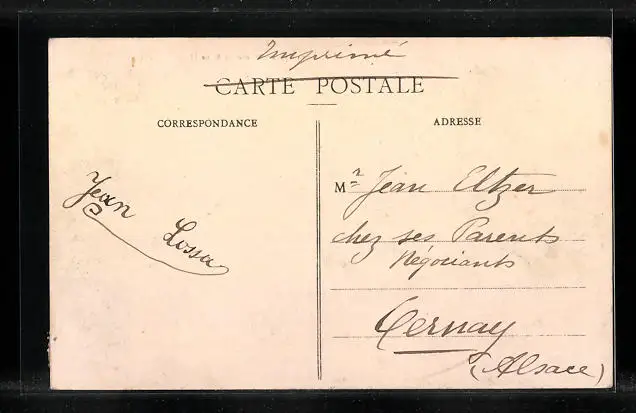 Imprimé
CARTE POSTALE
CORRESPONDANCE
ADRESSE
Jean Lossa
Mr Jean Eltzer
chez ses Parents
Négociants
Cernay
(Alsace)